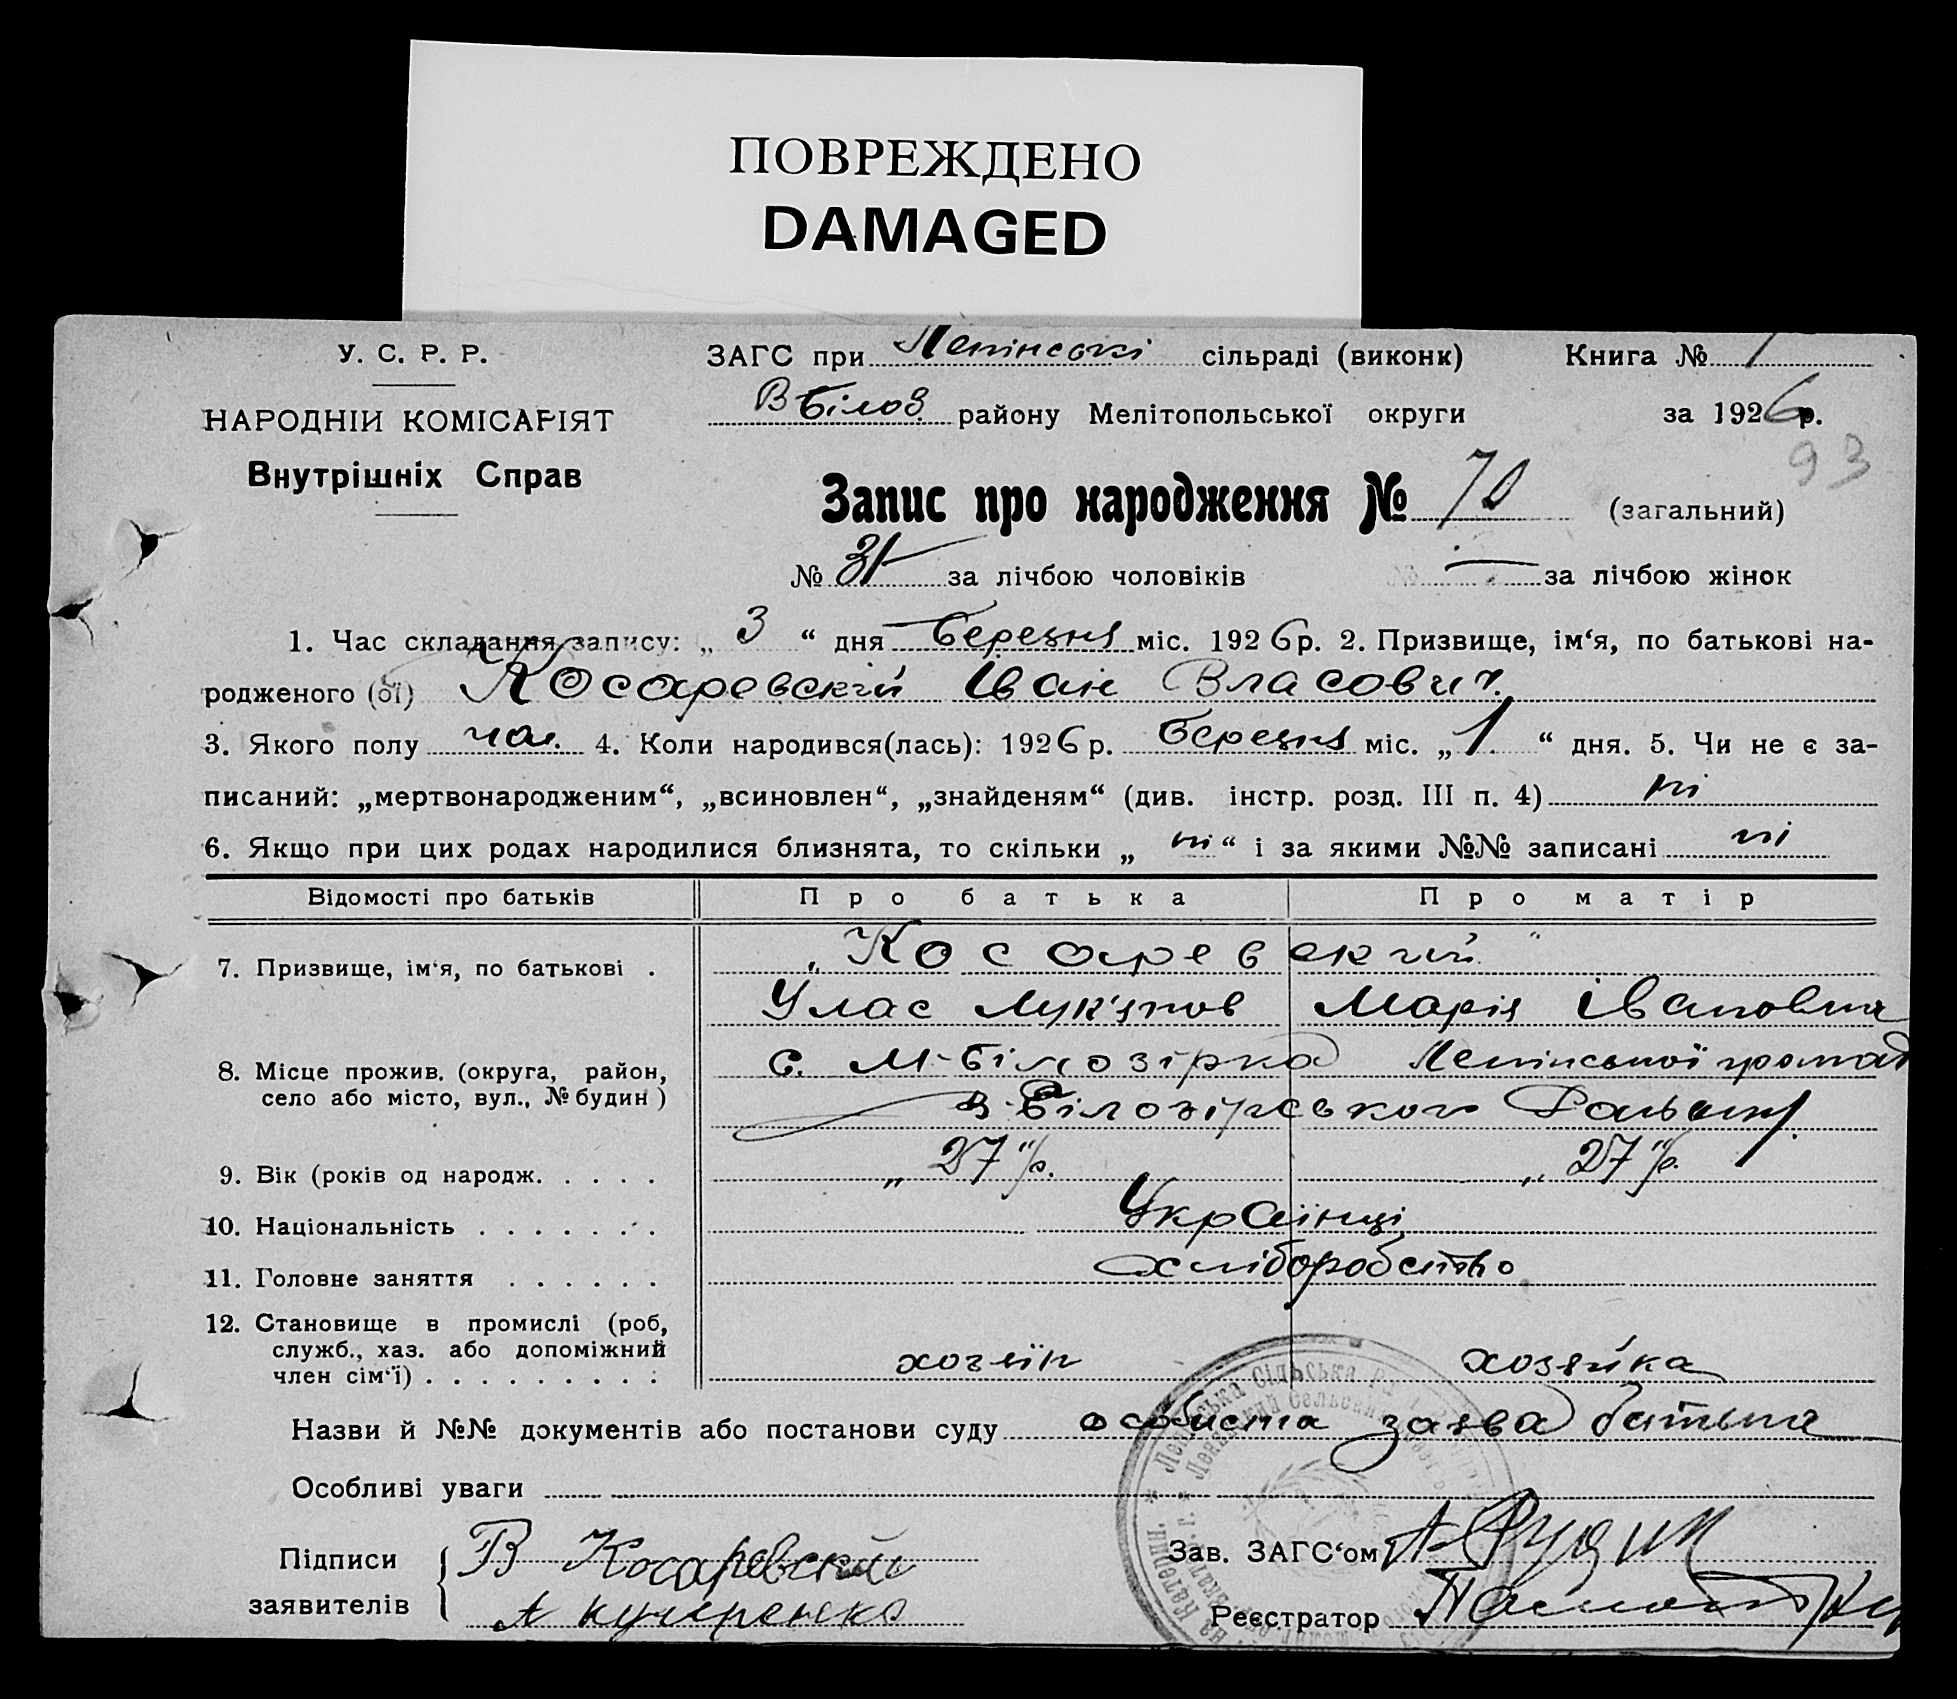 ПОВРЕЖДЕНО
DAMAGED
У. С. Р. Р.
НАРОДНІЙ КОМІСАРІЯТ
Внутрішніх Справ
ЗАГС при Ленінські сільраді (виконк) Книга № 1
В Білоз. району Мелітопольської округи за 1926 р.
93
Запис про народження № 70 (загальний)
№ 31 за лічбою чоловіків № — за лічбою жінок
1. Час складання запису: „ 3 “ дня березня міс. 1926 р. 2. Призвище, ім‘я, по батькові на-
родженого (ої) Косаревскій Іван Власович.
3. Якого полу чол. 4. Коли народився(лась): 1926 р. березня міс. „ 1. “ дня. 5. Чи не є за-
писаний: „мертвонародженим“, „всиновлен“, „знайденям“ (див. інстр. розд. III п. 4) ні
6. Якщо при цих родах народилися близнята, то скільки „ ні “ і за якими №№ записані ні
Відомості про батьків Про батька Про матір
7. Призвище, ім‘я, по батькові . „Косаревский“
Улас Лук'янов Марія Івановна
8. Місце прожив. (округа, район, с. М-Білозірка Ленінської громад
село або місто, вул., № будин) В-Білозірського Району.
9. Вік (років од народж. . . . . „ 27 “/р. „ 27 “/р.
10. Національність . . . . . . . Українці
11. Головне заняття . . . . . . хліборобство
12. Становище в промислі (роб,
служб., хаз. або допоміжний хозяїн хозяйка
член сім‘ї) . . . . . . . . . .
Назви й №№ документів або постанови суду особиста заява батька
Особливі уваги
Підписи В Косаревский Зав. ЗАГС‘ом
заявителів А Кучеренко Реєстратор